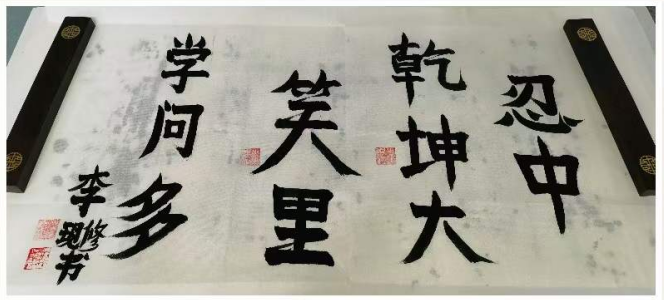 忍中
乾坤大
笑里
学问多
李修
书